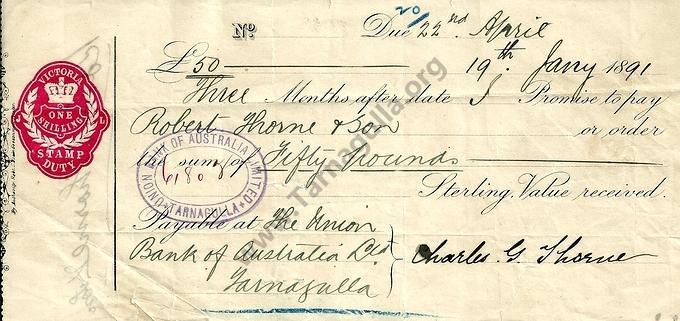 20/
No Due 22nd April
£50 19th Jany 1891
Three Months after date I Promise to pay
Robert Thorne & Son or order
the sum of Fifty Pounds
Sterling. Value received.
Payable at The Union
Bank of Australia Ltd
Tarnagulla
Charles G. Thorne
VICTORIA
ONE
SHILLING
STAMP
DUTY
UNION BANK OF AUSTRALIA LIMITED
TARNAGULLA
www.Tarnagulla.org